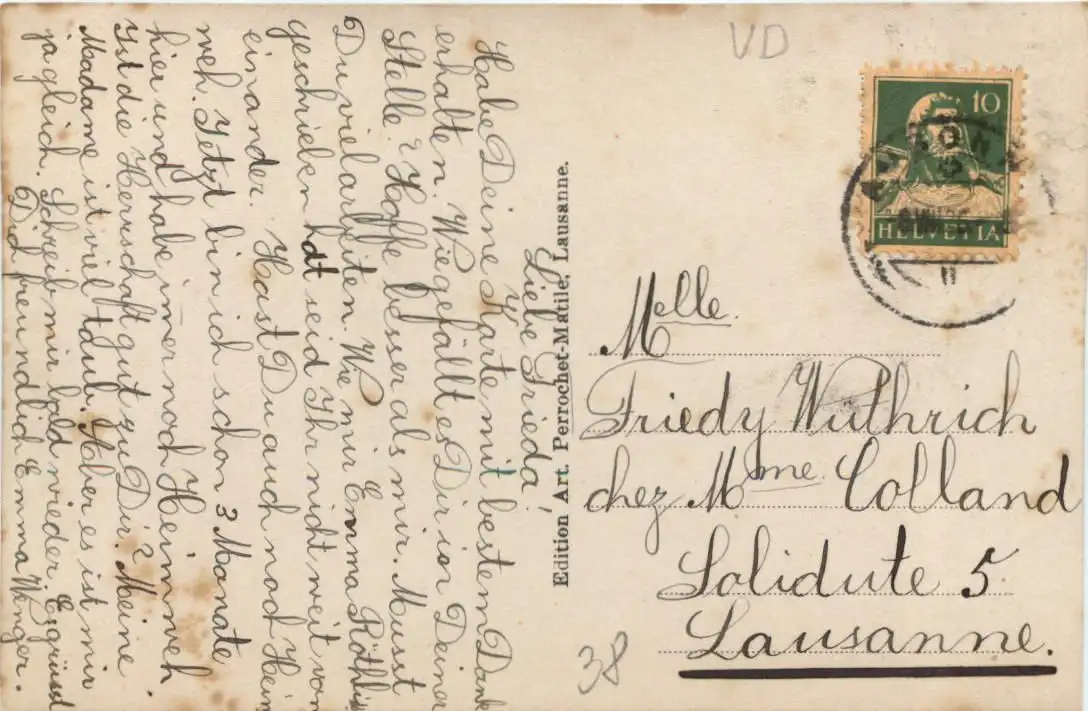 Liebe Frieda
Habe Deine Karte mit bestem Dank
erhalten. Wie gefällt es Dir in Deiner
Stelle? Hoffe besser als mir. Musst
Du viel arbeiten. Wie mir Emma Röthlis
geschrieben hat seid Ihr nicht weit von
einander. Hast Du auch noch Heim
weh. Jetzt bin ich schon 3 Monate
hier und habe immer noch Heimweh.
Ist die Herrschaft gut zu Dir? Meine
Madame ist viel taub. Aber es ist mir
ja gleich. Schreib mir bald wieder. Es grüsst
Dich freundlich Emma Wenger.
Edition Art. Perrochet-Matile, Lausanne.
VD
10
HELVETIA
Melle.
Friedy Wüthrich
chez Mme. Colland
Solidute 5
Lausanne.
38